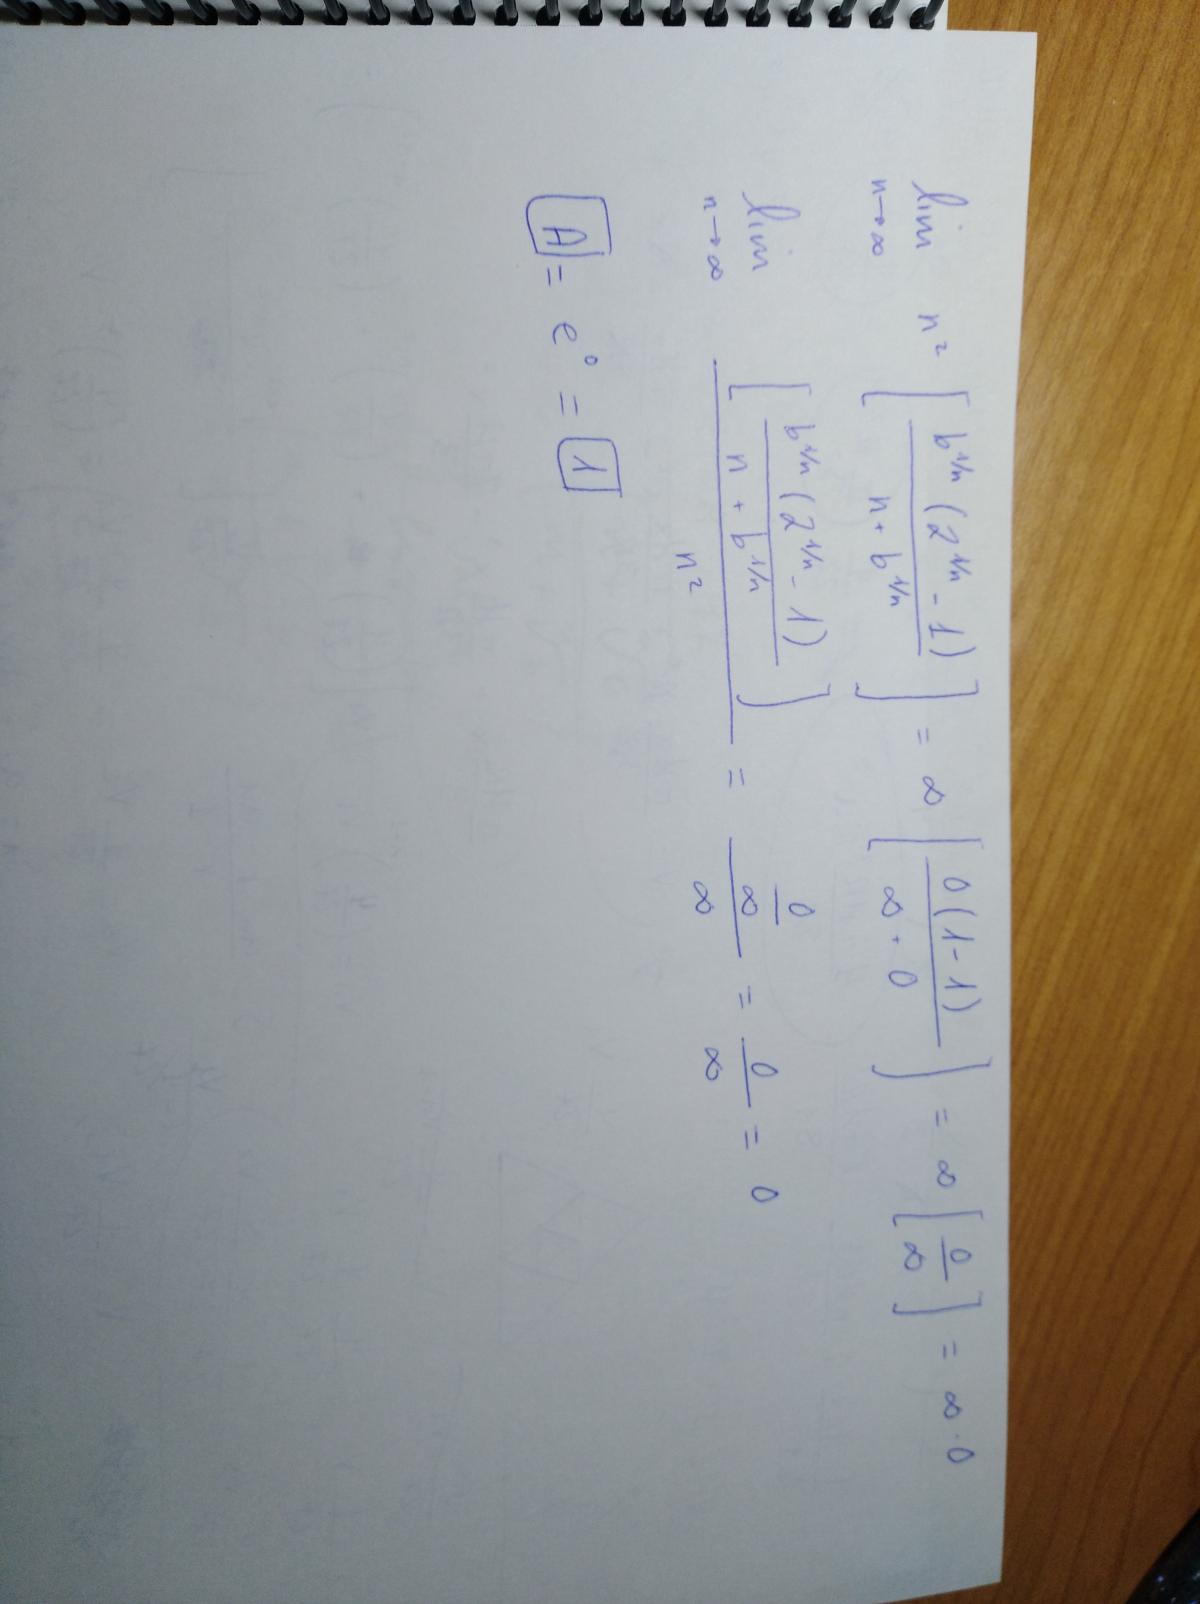 lim n→∞ n² [ b^{1/n} (2^{1/n} - 1) / (n + b^{1/n}) ] = ∞ [ 0(1-1) / (∞ + 0) ] = ∞ [ 0/∞ ] = ∞ · 0
lim n→∞ [ b^{1/n} (2^{1/n} - 1) / (n + b^{1/n}) ] / n² = (0/∞) / ∞ = 0/∞ = 0
A = e⁰ = 1